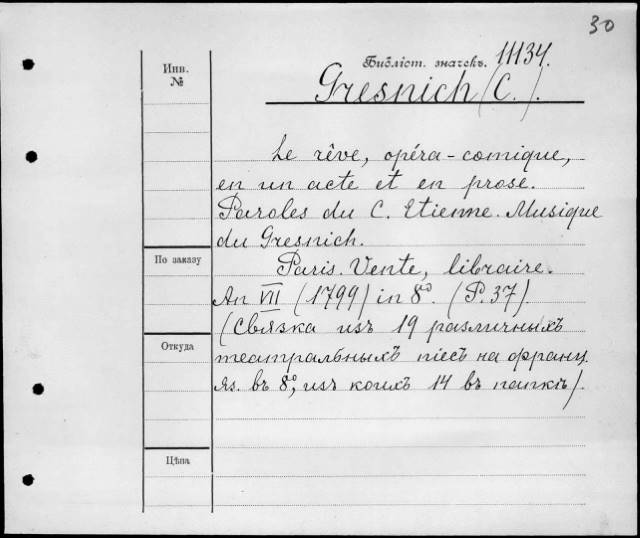 30
Библіот. значекъ. 11134.
Инв.
№
Gresnich (C.).
Le rêve, opéra-comique,
en un acte et en prose.
Paroles du C. Etienne. Musique
du Gresnich.
По заказу
Paris. Vente, libraire.
An VII (1799) in 8°. (P. 37).
(Связка изъ 19 различныхъ
Откуда
театральныхъ піесъ на франц.
яз. въ 8°, изъ коихъ 14 въ папкѣ).
Цѣна